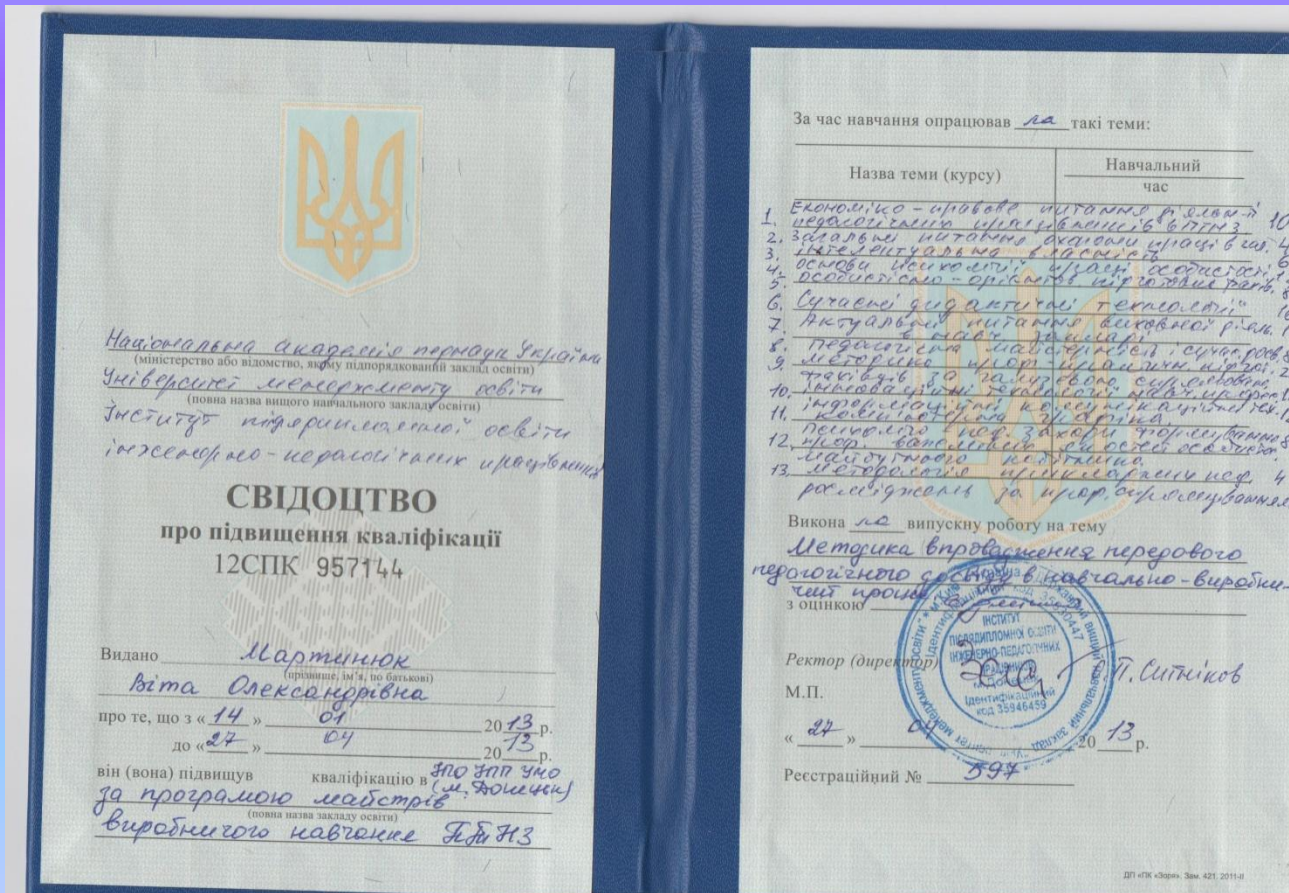 Національна академія педнаук України
(міністерство або відомство, якому підпорядкований заклад освіти)
Університет менеджменту освіти
(повна назва вищого навчального закладу освіти)
Інститут післядипломної освіти
інженерно-педагогічних працівників
СВІДОЦТВО
про підвищення кваліфікації
12СПК 957144
Видано Мартинюк
(прізвище, ім'я, по батькові)
Віта Олександрівна
про те, що з « 14 » 01 20 13 р.
до « 27 » 04 20 13 р.
він (вона) підвищув кваліфікацію в ІПО ІПП УМО
(м. Донецьк)
за програмою майстрів
(повна назва закладу освіти)
виробничого навчання ПТНЗ
За час навчання опрацював ла такі теми:
Назва теми (курсу) Навчальний
час
1. Економіко-правове питання діяльн-і 10
педагогічних працівників в ПТНЗ
2. Загальні питання охорони праці в гал. 4
3. Інтелектуальна власність 6
4. Основи психології праці особистості
5. Особистісно-орієнтов. підготовка 8
6. Сучасні дидактичні технології
7. Актуальні питання виховної діяль.
8. Педагогічна майстерність і сучас. 8
9. Методика проф. практичн. підгот. 2
фахівців за галузевою спрямован.
10. Інноваційні технології навч.
інформаційні комунікаційні тех.
11. комп'ютерна графіка
12. Психолого пед. заходи формування 8
проф. важливих якостей особист.
майбутнього робітника
13. Методологія прикладних пед. 4
досліджень за проф. спрямуванням
Викона ла випускну роботу на тему
Методика впровадження передового
педагогічного досвіду в навчально-виробни-
чий процес
з оцінкою
Ректор (директор) П. Ситніков
М.П.
ІНСТИТУТ
ПІСЛЯДИПЛОМНОЇ ОСВІТИ
ІНЖЕНЕРНО-ПЕДАГОГІЧНИХ
ПРАЦІВНИКІВ
Ідентифікаційний
код 35946459
« 27 » 04 20 13 р.
Реєстраційний № 597
ДП «ПК «Зоря». Зам. 421. 2011-II